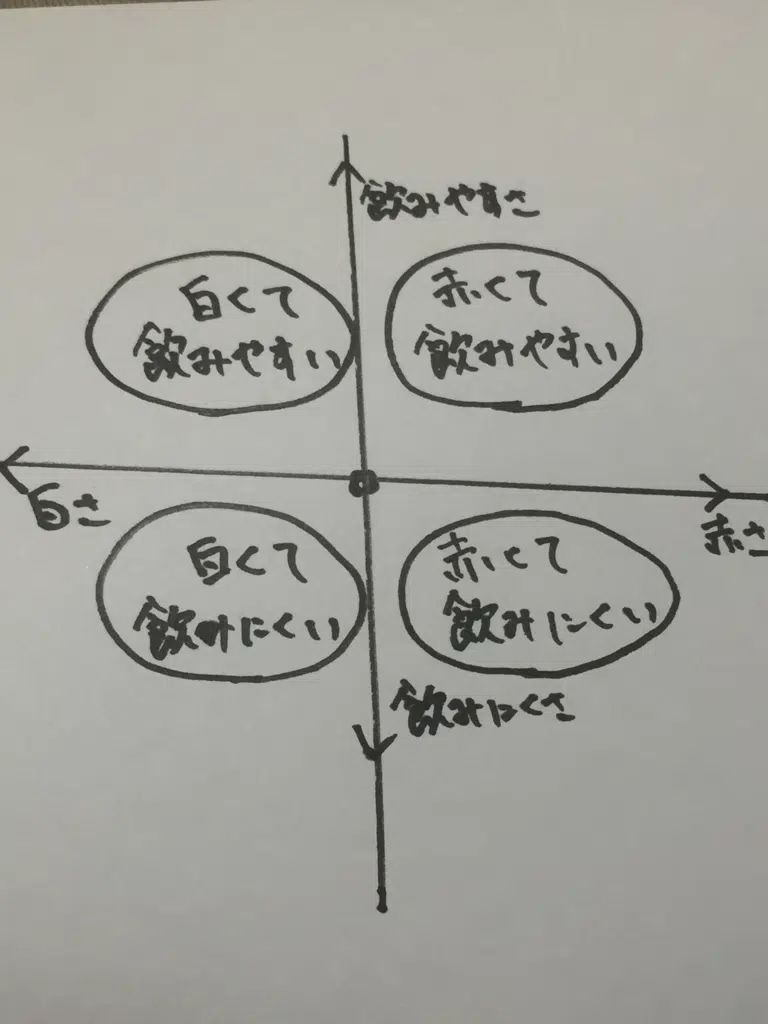 飲みやすさ
白くて
飲みやすい
赤くて
飲みやすい
白さ
赤さ
白くて
飲みにくい
赤くて
飲みにくい
飲みにくさ